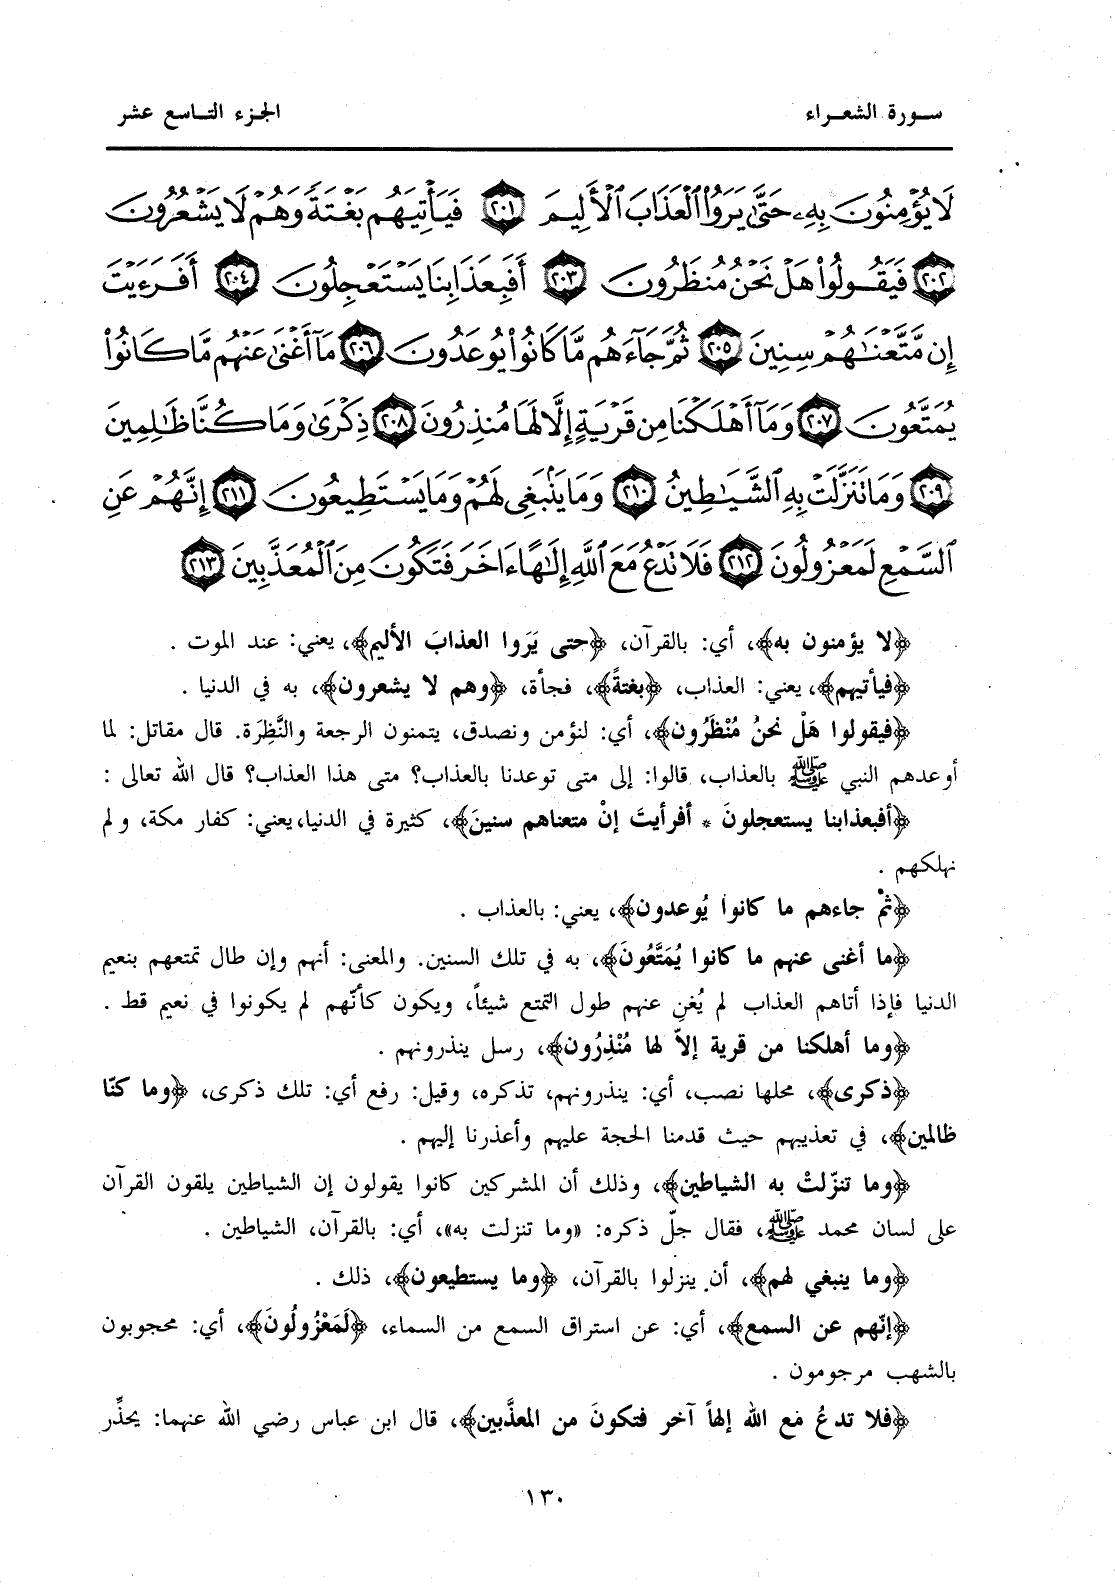 سورة الشعراء
الجزء التاسع عشر
لَا يُؤْمِنُونَ بِهِۦ حَتَّىٰ يَرَوُا۟ ٱلْعَذَابَ ٱلْأَلِيمَ ٢٠١ فَيَأْتِيَهُم بَغْتَةً وَهُمْ لَا يَشْعُرُونَ
٢٠٢ فَيَقُولُوا۟ هَلْ نَحْنُ مُنظَرُونَ ٢٠٣ أَفَبِعَذَابِنَا يَسْتَعْجِلُونَ ٢٠٤ أَفَرَءَيْتَ
إِن مَّتَّعْنَـٰهُمْ سِنِينَ ٢٠٥ ثُمَّ جَآءَهُم مَّا كَانُوا۟ يُوعَدُونَ ٢٠٦ مَآ أَغْنَىٰ عَنْهُم مَّا كَانُوا۟
يُمَتَّعُونَ ٢٠٧ وَمَآ أَهْلَكْنَا مِن قَرْيَةٍ إِلَّا لَهَا مُنذِرُونَ ٢٠٨ ذِكْرَىٰ وَمَا كُنَّا ظَـٰلِمِينَ
٢٠٩ وَمَا تَنَزَّلَتْ بِهِ ٱلشَّيَـٰطِينُ ٢١٠ وَمَا يَنۢبَغِى لَهُمْ وَمَا يَسْتَطِيعُونَ ٢١١ إِنَّهُمْ عَنِ
ٱلسَّمْعِ لَمَعْزُولُونَ ٢١٢ فَلَا تَدْعُ مَعَ ٱللَّهِ إِلَـٰهًا ءَاخَرَ فَتَكُونَ مِنَ ٱلْمُعَذَّبِينَ ٢١٣
﴿لا يؤمنون به﴾، أي: بالقرآن، ﴿حتى يَرَوا العذابَ الأليم﴾، يعني: عند الموت .
﴿فيأتيهم﴾، يعني: العذاب، ﴿بغتةً﴾، فجأة، ﴿وهم لا يشعرون﴾، به في الدنيا .
﴿فيقولوا هَلْ نحنُ مُنْظَرُون﴾، أي: لنؤمن ونصدق، يتمنون الرجعة والنَّظِرَة. قال مقاتل: لما
أوعدهم النبي ﷺ بالعذاب، قالوا: إلى متى توعدنا بالعذاب؟ متى هذا العذاب؟ قال الله تعالى :
﴿أفبعذابنا يستعجلونَ * أفرأيتَ إنْ متعناهم سنينَ﴾، كثيرة في الدنيا، يعني: كفار مكة، ولم
نهلكهم .
﴿ثمْ جاءهم ما كانوا يُوعدون﴾، يعني: بالعذاب .
﴿ما أغنى عنهم ما كانوا يُمَتَّعُونَ﴾، به في تلك السنين. والمعنى: أنهم وإن طال تمتعهم بنعيم
الدنيا فإذا أتاهم العذاب لم يُغنِ عنهم طول التمتع شيئاً، ويكون كأنّهم لم يكونوا في نعيم قط .
﴿وما أهلكنا من قرية إلاّ لها مُنْذِرُون﴾، رسل ينذرونهم .
﴿ذكرى﴾، محلها نصب، أي: ينذرونهم، تذكره، وقيل: رفع أي: تلك ذكرى، ﴿وما كنّا
ظالمين﴾، في تعذيبهم حيث قدمنا الحجة عليهم وأعذرنا إليهم .
﴿وما تنزّلتْ به الشياطين﴾، وذلك أن المشركين كانوا يقولون إن الشياطين يلقون القرآن
على لسان محمد ﷺ، فقال جلّ ذكره: «وما تنزلت به»، أي: بالقرآن، الشياطين .
﴿وما ينبغي لهم﴾، أن ينزلوا بالقرآن، ﴿وما يستطيعون﴾، ذلك .
﴿إنّهم عن السمع﴾، أي: عن استراق السمع من السماء، ﴿لَمَعْزُولُونَ﴾، أي: محجوبون
بالشهب مرجومون .
﴿فلا تدعُ مع الله إلهاً آخر فتكونَ من المعذَّبين﴾، قال ابن عباس رضي الله عنهما: يحذِّر
١٣٠